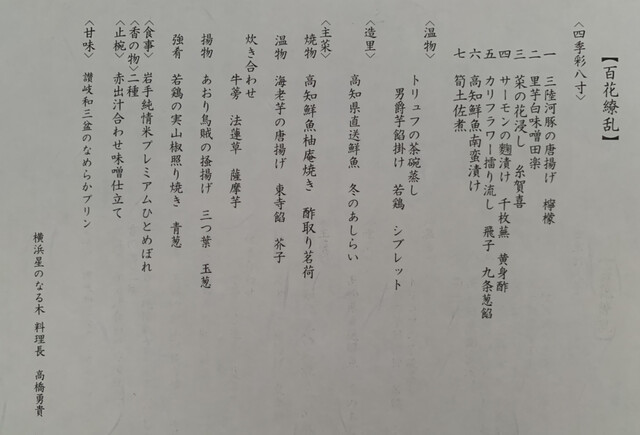 【百花繚乱】
〈四季彩八寸〉
一 三陸河豚の唐揚げ 檸檬
二 里芋白味噌田楽
三 菜の花浸し 糸賀喜
四 サーモンの麹漬け 千枚蕪 黄身酢
五 カリフラワー擂り流し 飛子 九条葱餡
六 高知鮮魚南蛮漬け
七 筍土佐煮
〈温物〉
トリュフの茶碗蒸し
男爵芋餡掛け 若鶏 シブレット
〈造里〉
高知県直送鮮魚 冬のあしらい
〈主菜〉
焼物 高知鮮魚柚庵焼き 酢取り茗荷
温物 海老芋の唐揚げ 東寺餡 芥子
炊き合わせ
牛蒡 法蓮草 薩摩芋
揚物 あおり烏賊の掻揚げ 三つ葉 玉葱
強肴 若鶏の実山椒照り焼き 青葱
〈食事〉 岩手純情米プレミアムひとめぼれ
〈香の物〉二種
〈止椀〉 赤出汁合わせ味噌仕立て
〈甘味〉 讃岐和三盆のなめらかプリン
横浜星のなる木 料理長 高橋勇貴